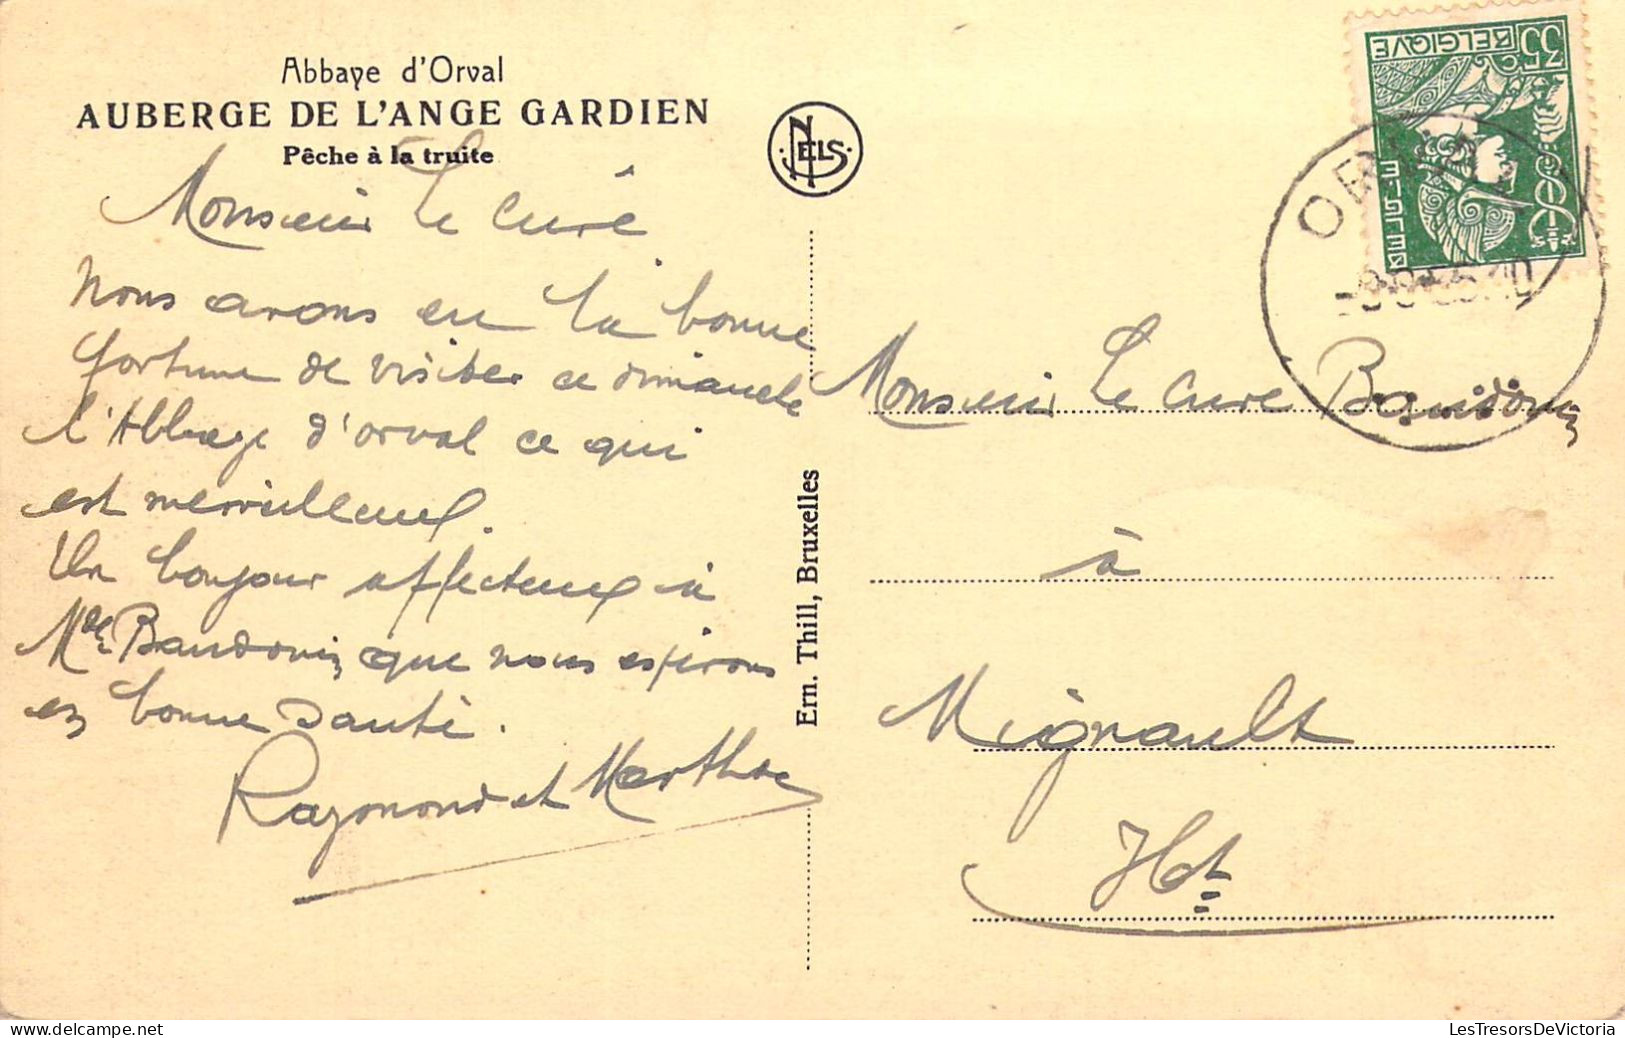 Abbaye d'Orval
AUBERGE DE L'ANGE GARDIEN
Pêche à la truite
NELS
Monsieur le Curé
Nous avons eu la bonne
fortune de visiter ce dimanche
l'Abbaye d'orval ce qui
est merveilleux.
Un bonjour affectueux à
Mlle Baudouin que nous espérons
en bonne santé.
Raymond et Marthe
Ern. Thill, Bruxelles
35
BELGIQUE
BELGIË
ORVAL
Monsieur le Curé Baudouin
à
Mignault
Ht
LesTresorsDeVictoria
https://www.delcampe.net